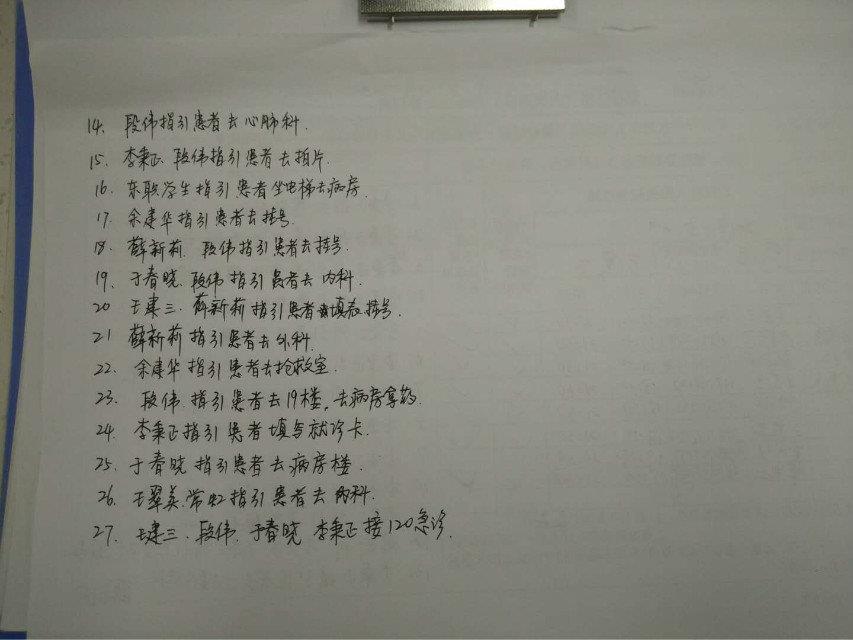 14、段伟指引患者去心肺科.
15、李秉正、段伟指引患者去拍片.
16、东联学生指引患者坐电梯去病房.
17、余建华指引患者去挂号
18、薛新莉、段伟指引患者去挂号.
19、于春晓、段伟指引患者去内科.
20、王建三、薛新莉指引患者填表挂号.
21 薛新莉指引患者去外科.
22、余建华指引患者去抢救室.
23、段伟指引患者去19楼,去病房拿药.
24、李秉正指引患者填写就诊卡.
25、于春晓指引患者去病房楼.
26、王翠英、常虹指引患者去内科.
27、王建三、段伟、于春晓 李秉正接120急诊.